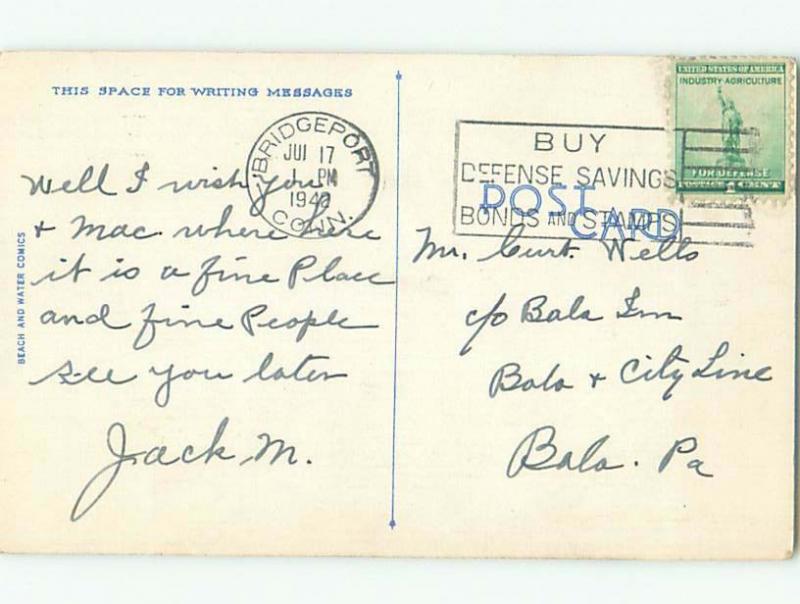 THIS SPACE FOR WRITING MESSAGES
BRIDGEPORT
JUL 17
1 PM
CONN.
BUY
DEFENSE SAVINGS
BONDS AND STAMPS
UNITED STATES OF AMERICA
INDUSTRY·AGRICULTURE
FOR DEFENSE
POSTAGE 1 CENT
POST
CARD
Well I wish you
& Mac. where here
it is a fine Place
and fine People
see you later
Jack M.
BEACH AND WATER COMICS
Mr. Curt. Wells
c/o Bala Inn
Bala & City Line
Bala. Pa